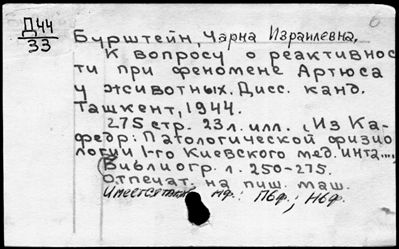 Д44
33
6
Бурштейн, Чарна Израилевна.
К вопросу о реактивнос
ти при феномене Артюса
у животных. Дисс. канд.
Ташкент, 1944.
275 стр. 23л. илл. (Из Ка-
федр: Патологической физио
логии 1-го Киевского мед. инта...,
(Библиогр. л. 250-275.
Отпечат. на пиш. маш.
Имеется нф.: Пбф.; Нбф.